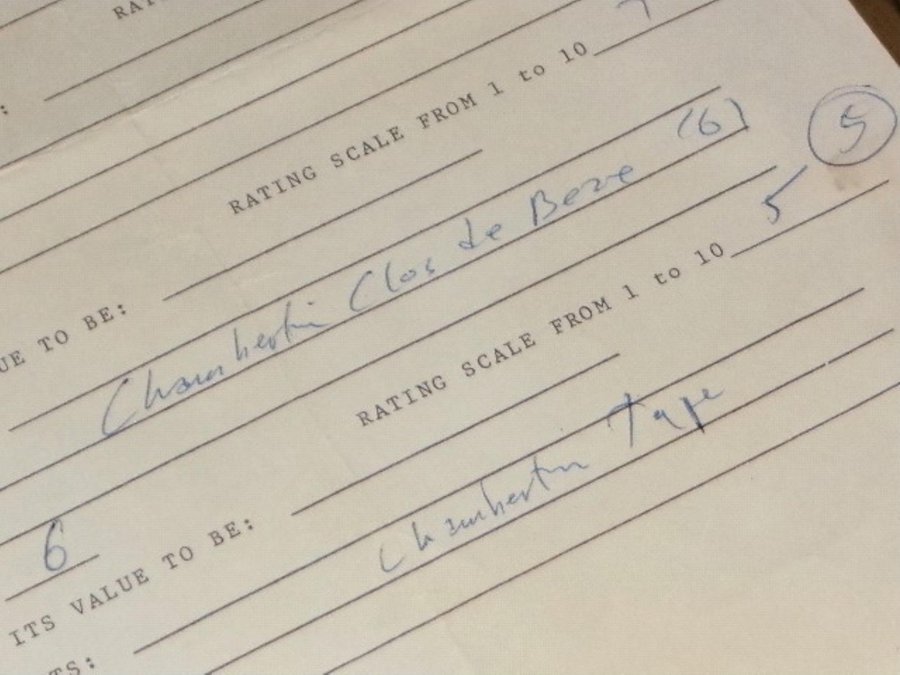 RAT
:
RATING SCALE FROM 1 to 10 7
UE TO BE:
Chambertin Clos de Beze (6)
5
RATING SCALE FROM 1 to 10 5
6
ITS VALUE TO BE:
Chambertin Tape
TS: